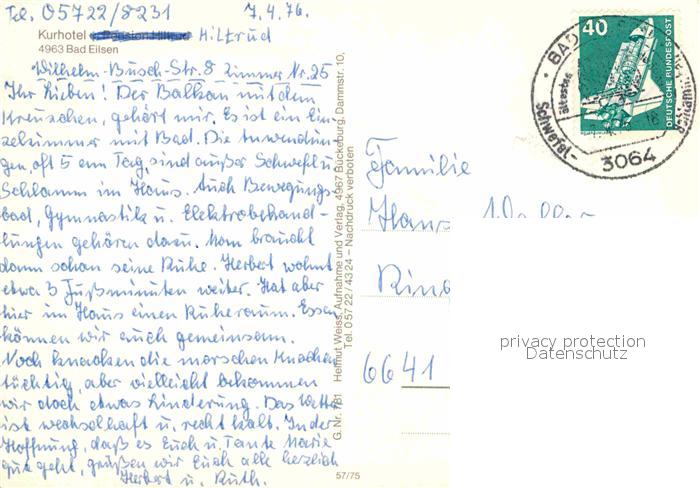 Tel. 05722/8231 7.4.76.
Kurhotel Hiltrud
4963 Bad Eilsen
Wilhelm-Busch-Str. 8 Zimmer Nr. 25
Ihr Lieben! Der Balkon mit dem
Kreuzchen, gehört mir. Es ist ein Ein-
zelzimmer mit Bad. Die Anwendun-
gen, oft 5 am Tag, sind außer Schwefel u.
Schlamm im Haus. Auch Bewegungs-
bad, Gymnastik u. Elektrobehand-
lungen gehören dazu. Man braucht
dann schon seine Ruhe. Herbert wohnt
etwa 3 Fußminuten weiter. Hat aber
hier im Haus einen Ruheraum. Essen
können wir auch gemeinsam.
Noch knacken die morschen Knochen
tüchtig, aber vielleicht bekommen
wir doch etwas Linderung. Das Wetter
ist wechselhaft u. recht kalt. In der
Hoffnung, daß es Euch u. Tante Marie
gut geht, grüßen wir Euch alle herzlich
Herbert u. Ruth.
G.Nr. 781 Helmut Weiss, Aufnahme und Verlag, 4967 Bückeburg, Dammstr. 10,
Tel. 05722/4324 – Nachdruck verboten
57/75
40
DEUTSCHE BUNDESPOST
BAD
ältestes
Schwefel-
3064
Familie
6641
privacy protection
Datenschutz